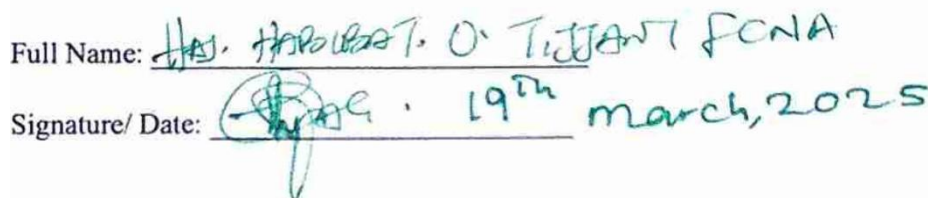 Full Name: HAJ. T. O. TIJJANI FCNA
Signature/ Date: 19th march, 2025